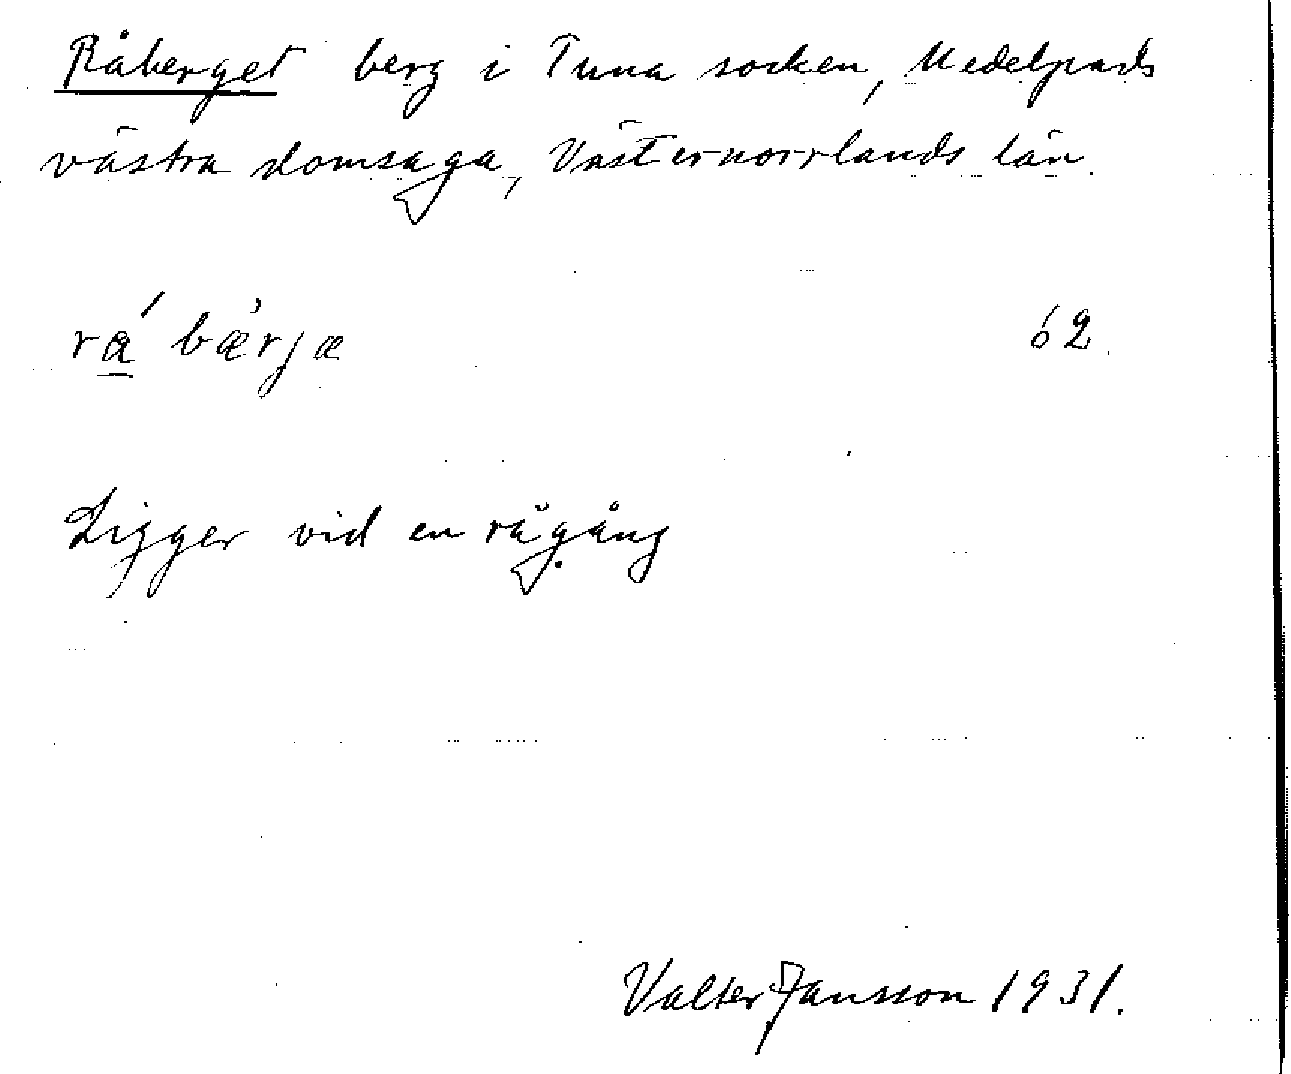 Råberget berg i Tuna socken, Medelpads
västra domsaga, Västernorrlands län.
rá bæ̀rjæ 62
Ligger vid en rågång
Valter Jansson 1931.